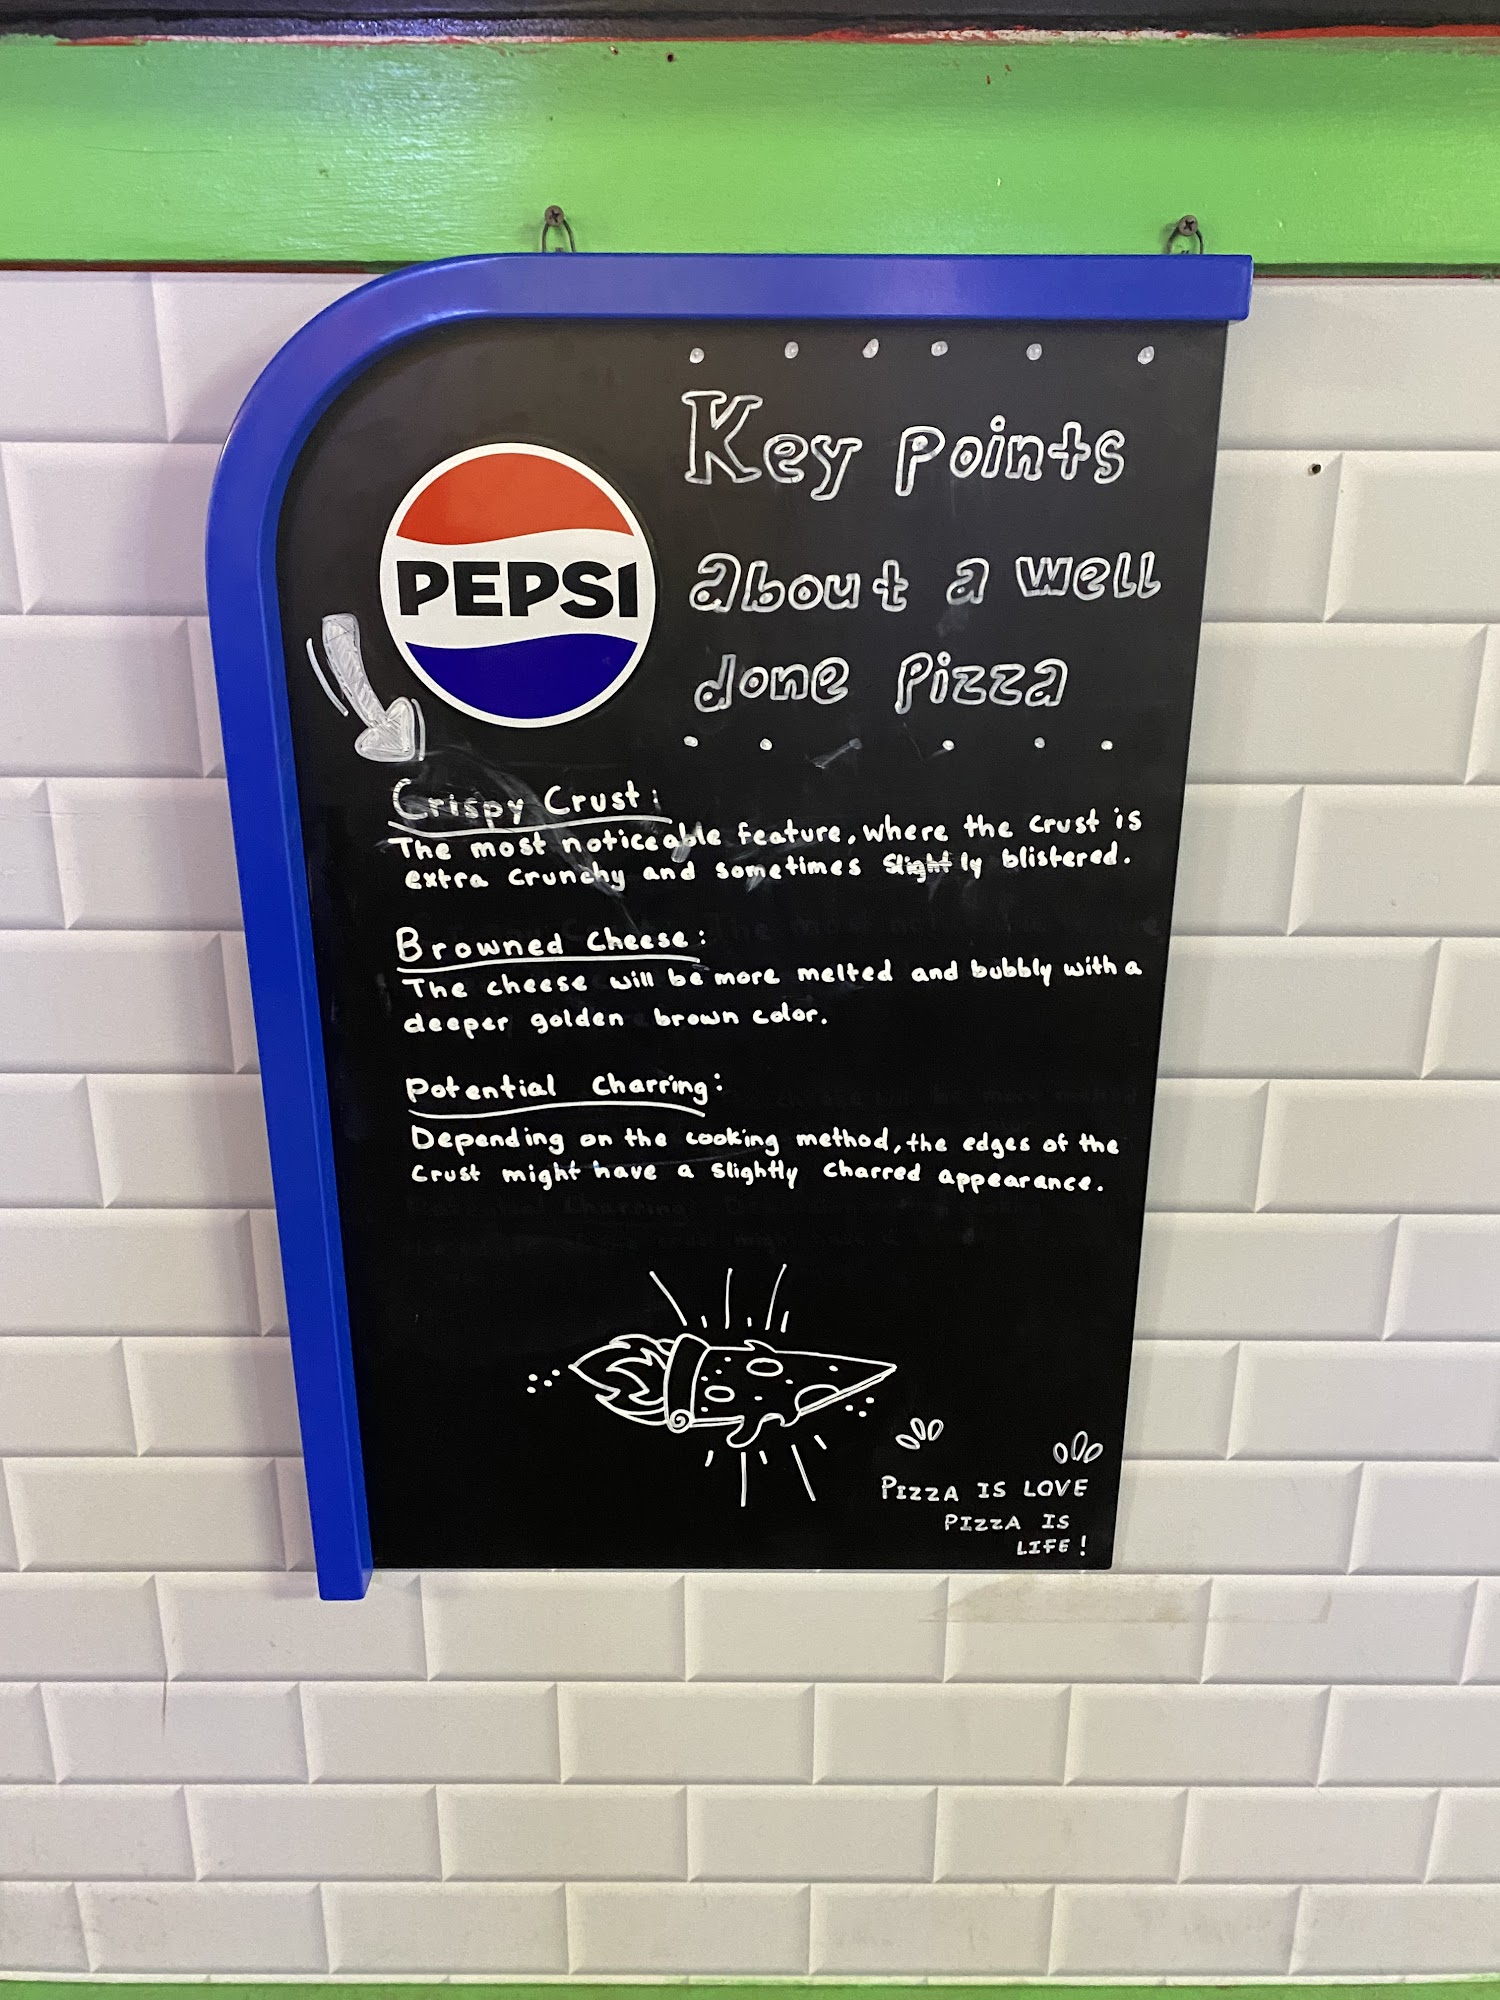 PEPSI
Key Points
about a well
done Pizza
Crispy Crust:
The most noticeable feature, where the crust is
extra crunchy and sometimes slightly blistered.
Browned Cheese:
The cheese will be more melted and bubbly with a
deeper golden brown color.
Potential Charring:
Depending on the cooking method, the edges of the
crust might have a slightly charred appearance.
PIZZA IS LOVE
PIZZA IS
LIFE!